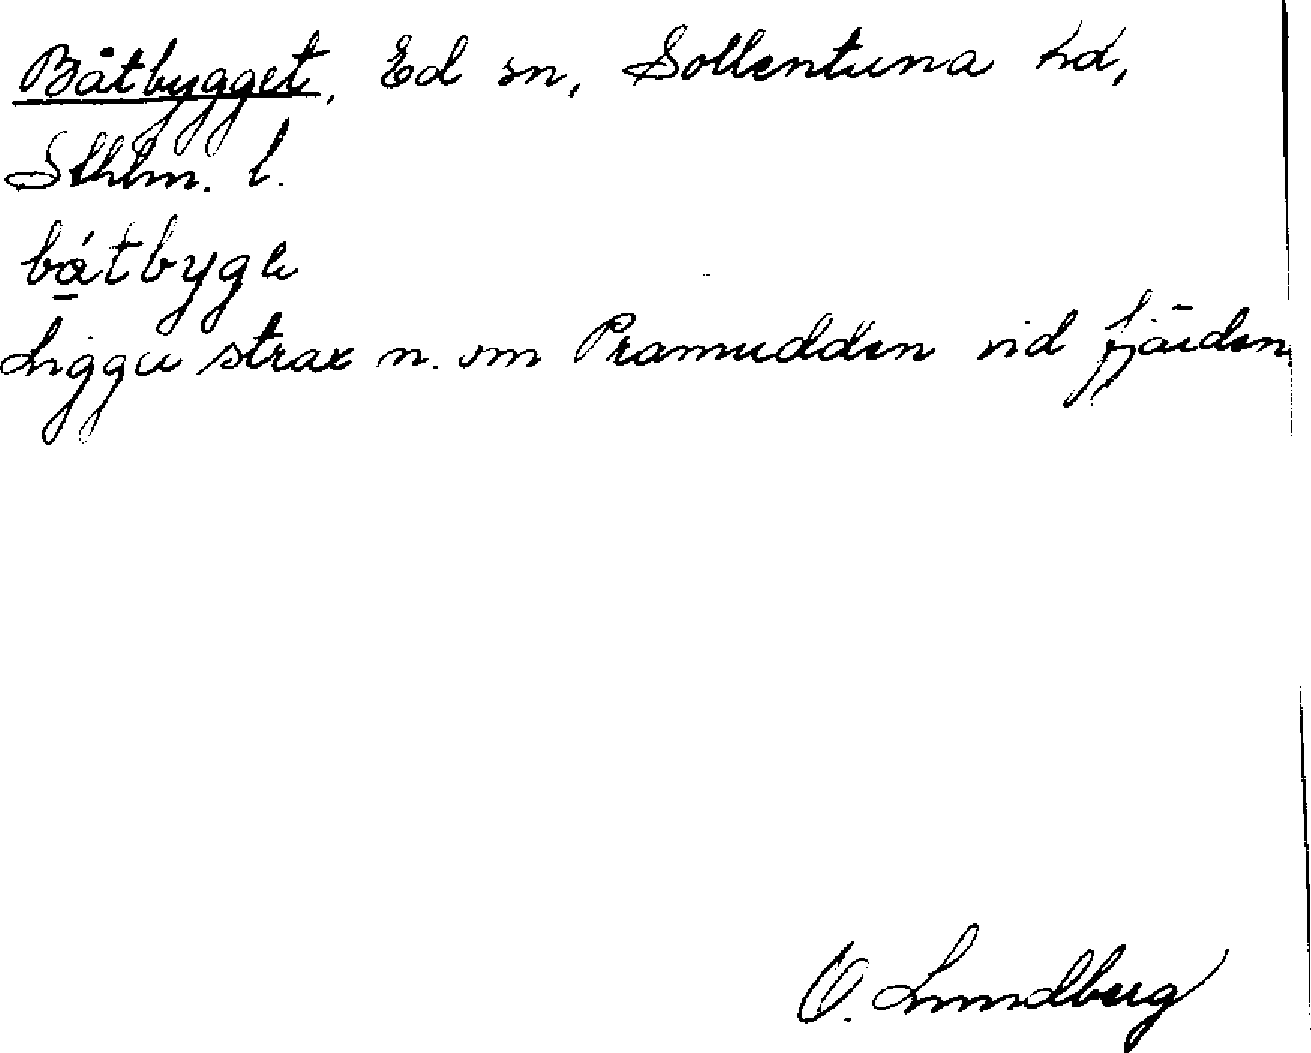 Båtbygget, Ed sn, Sollentuna hd,
Sthlm. l.
Ligger strax n. om Pramudden vid fjärden
O. Lundberg